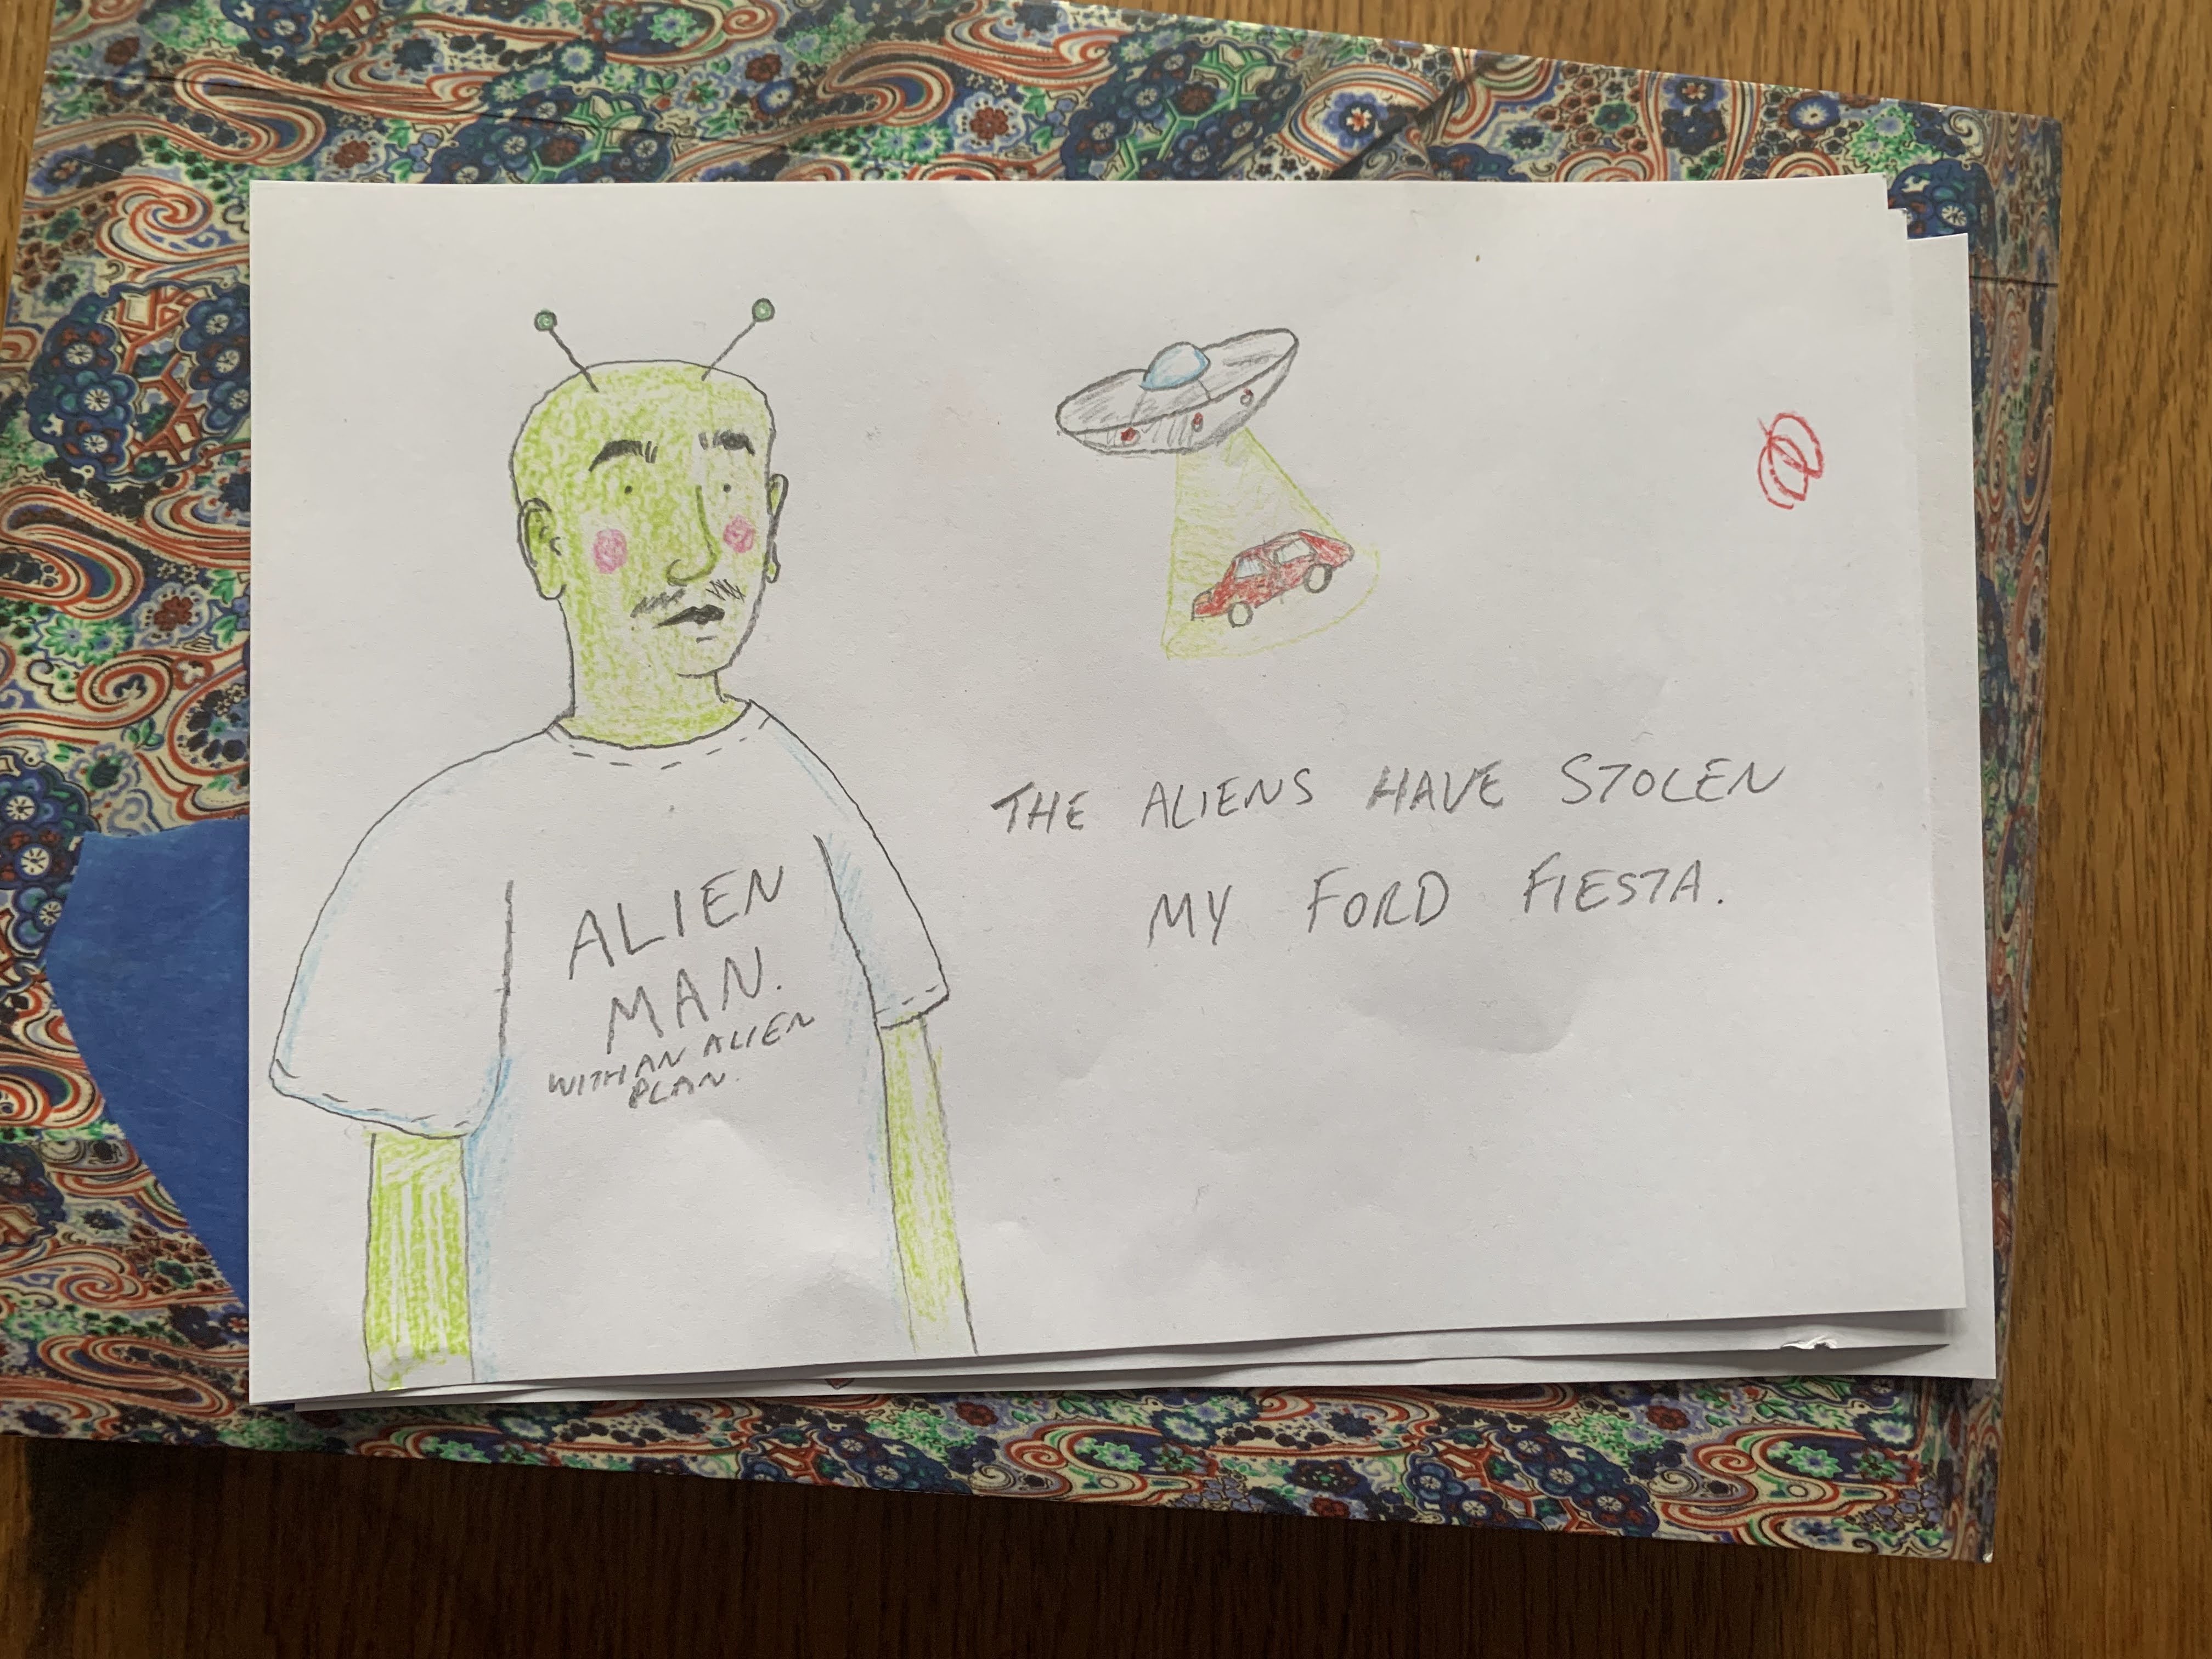 ALIEN
MAN.
WITH AN ALIEN
PLAN.
THE ALIENS HAVE STOLEN
MY FORD FIESTA.